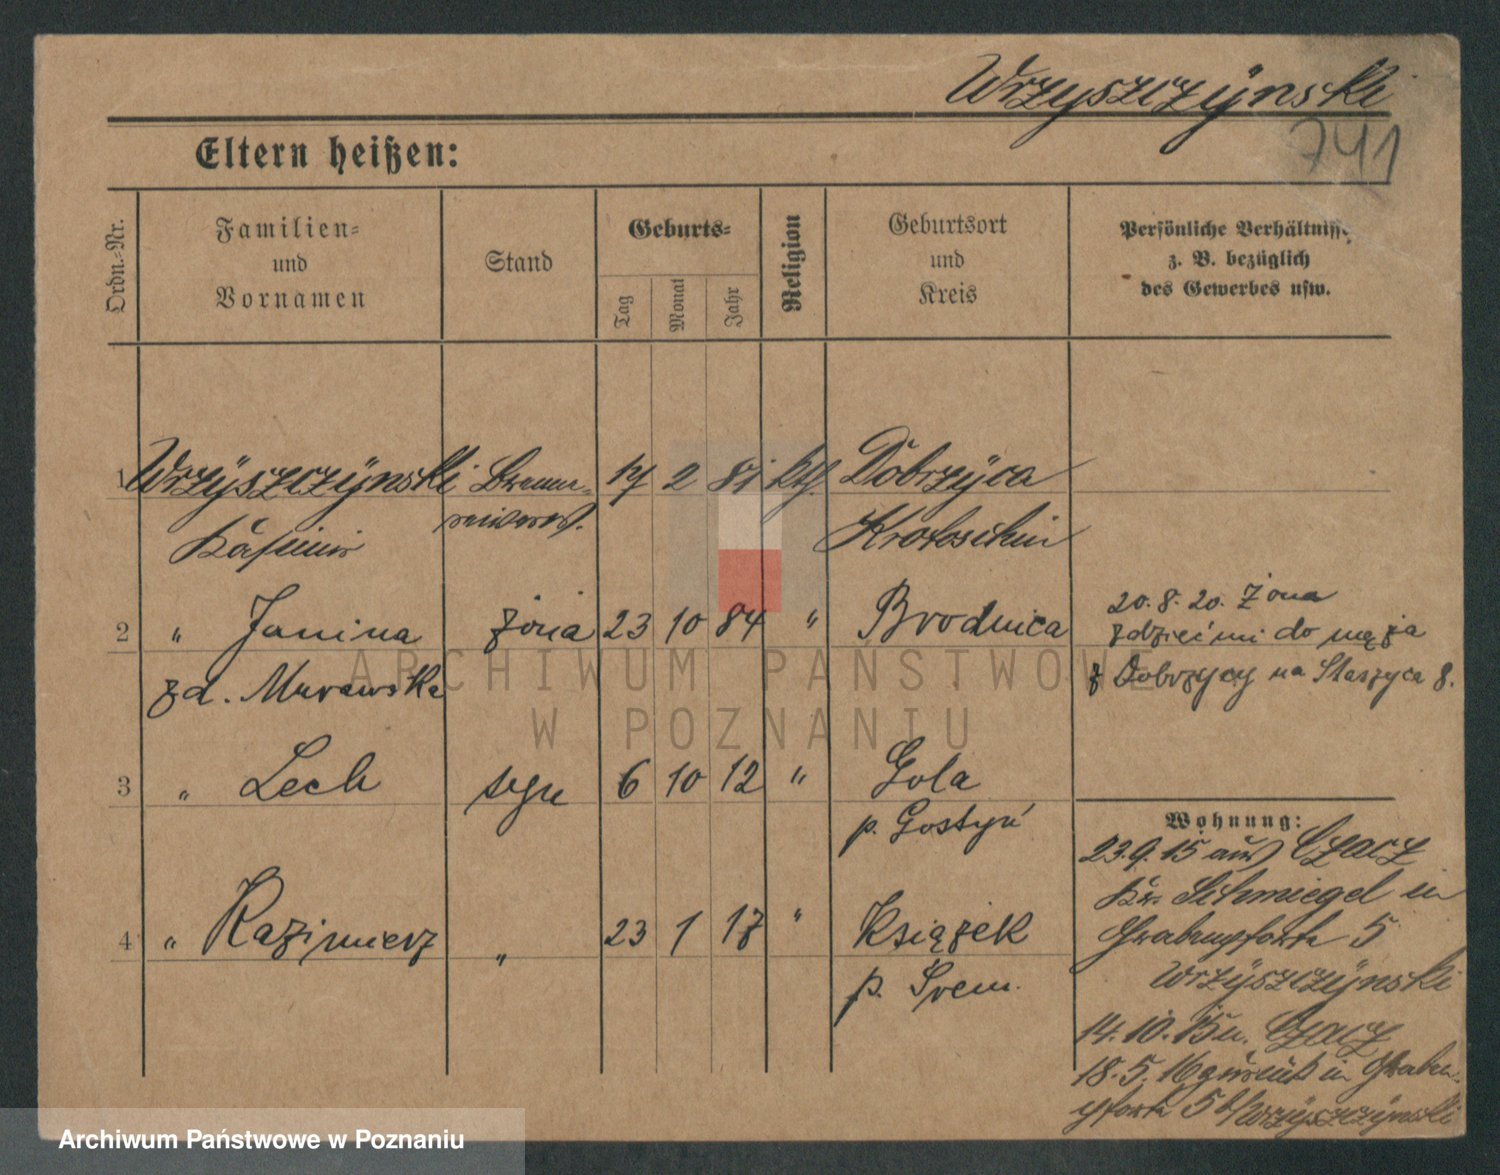 Wrzyszczynski
741
Eltern heißen:
Ordn.-Nr.
Familien-
und
Vornamen
Stand
Geburts-
Tag
Monat
Jahr
Religion
Geburtsort
und
Kreis
Persönliche Verhältnisse
z. B. bezüglich
des Gewerbes usw.
1 Wrzyszczynski 17 2 81 kth. Dobrzyca
Kasimir Krotoschin
2 " Janina żona 23 10 84 " Brodnica
zd. Murawska
20.8.20. Żona
z dziećmi do męża
z Dobrzycy na Staszyca 8.
3 " Lech syn 6 10 12 " Gola
p. Gostyń
4 " Kazimierz " 23 1 17 " Książek
p. Śrem.
Wohnung:
23.9.15 aus Czacz
Kr. Schmiegel in
Grabenpforte 5
Wrzyszczynski
14.10.15 n. Czacz
18.5.16 zurück in Graben-
pforte 5 b/Wrzyszczynski
ARCHIWUM PAŃSTWOWE
W POZNANIU
Archiwum Państwowe w Poznaniu